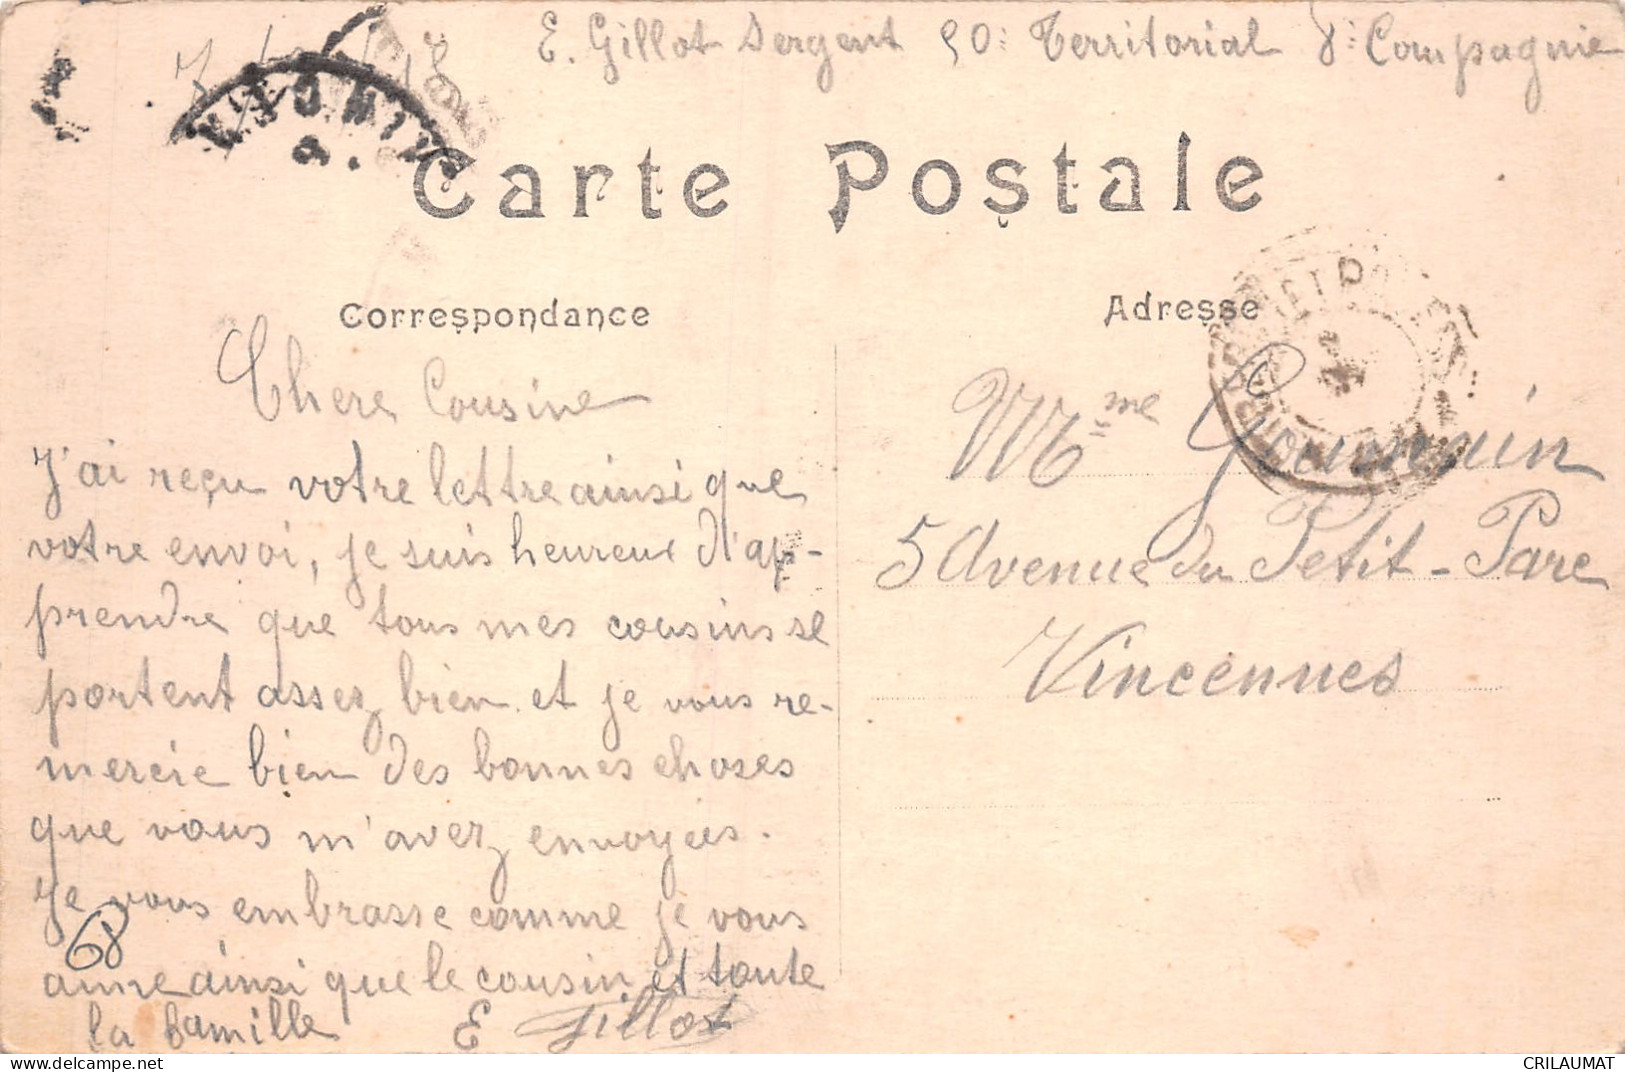 E. Gillot Sergent 90e Territorial 8e Compagnie
Carte Postale
Correspondance
Adresse
Chere Cousine
J'ai reçu votre lettre ainsi que
votre envoi, je suis heureux d'ap-
prendre que tous mes cousins se
portent assez bien et je vous re-
mercie bien des bonnes choses
que vous m'avez envoyées.
Je vous embrasse comme je vous
aime ainsi que le cousin et toute
la famille E Gillot
68
Mme
5 Avenue du Petit-Parc
Vincennes
CRILAUMAT